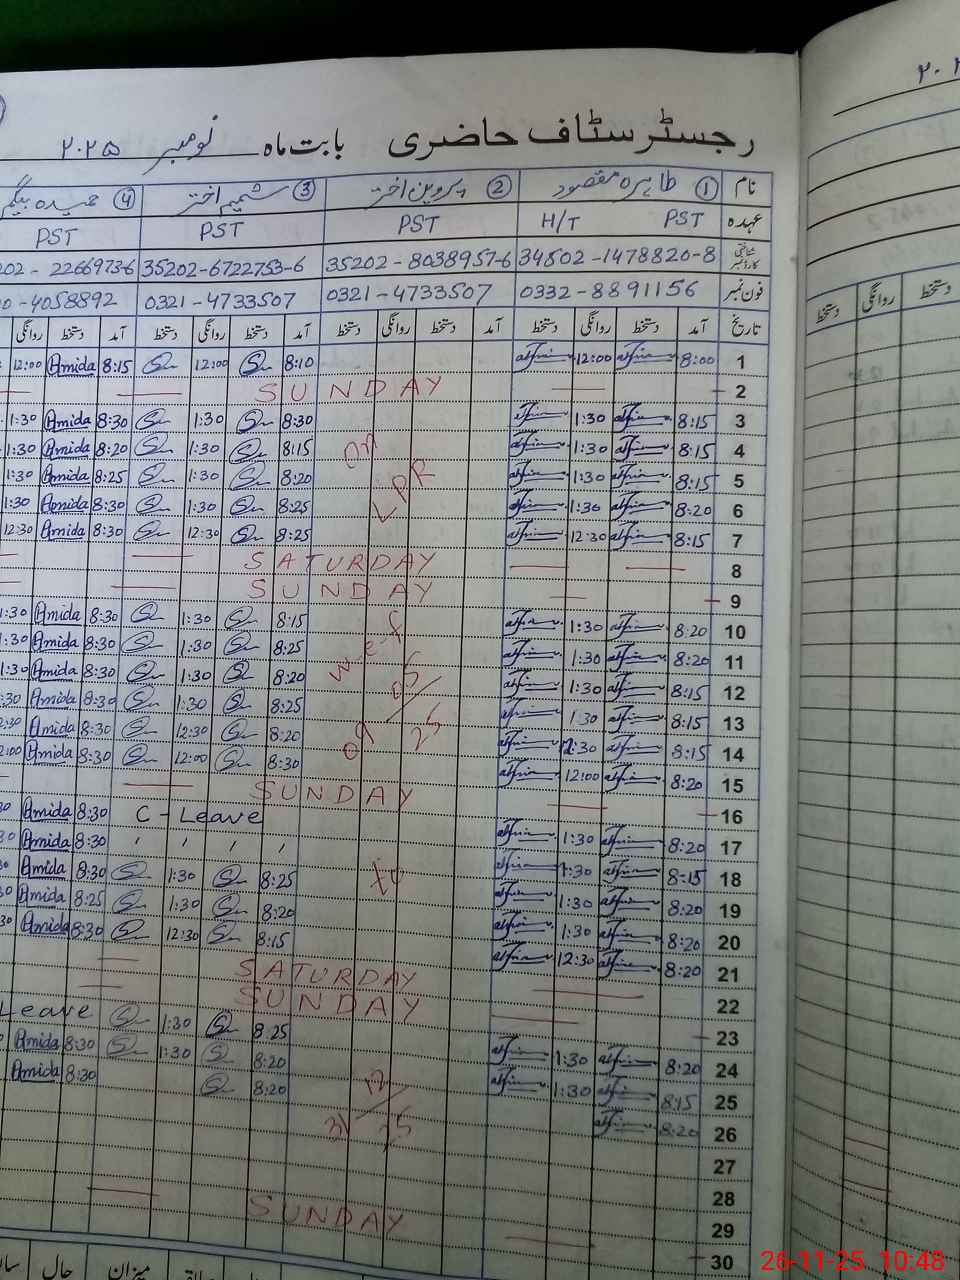 ۲۰۲
رجسٹر سٹاف حاضری بابت ماہ نومبر ۲۰۲۵
نام ① طاہرہ مقصود ② پروین اختر ③ شمیم اختر ④ حمیدہ بیگم
عہدہ PST H/T PST PST PST
شناختی کارڈ نمبر 34502-1478820-8 35202-8038957-6 35202-6722753-6 202-2266973-6
فون نمبر 0332-8891156 0321-4733507 0321-4733507 0-4058892
تاریخ آمد دستخط روانگی دستخط آمد دستخط روانگی دستخط آمد دستخط روانگی دستخط آمد دستخط روانگی
1 8:00 12:00 8:10 12:00 8:15 Amida 12:00
2 SUNDAY
3 8:15 1:30 8:30 1:30 8:30 Amida 1:30
4 8:15 1:30 on 8:15 1:30 8:20 Amida 1:30
5 8:15 1:30 LPR 8:20 1:30 8:25 Amida 1:30
6 8:20 1:30 8:25 1:30 8:30 Amida 1:30
7 8:15 12:30 8:25 12:30 8:30 Amida 12:30
8 SATURDAY
9 SUNDAY
10 8:20 1:30 w.e.f 8:15 1:30 8:30 Amida 1:30
11 8:20 1:30 8:25 1:30 8:30 Amida 1:30
12 8:15 1:30 09/05/25 8:20 1:30 8:30 Amida 1:30
13 8:15 1:30 8:25 1:30 8:30 Amida :30
14 8:15 12:30 8:20 12:30 8:30 Amida 2:30
15 8:20 12:00 8:30 12:00 8:30 Amida 2:00
16 SUNDAY
17 8:20 1:30 C-Leave 8:30 Amida 30
18 8:15 1:30 to , , , , 8:30 Amida 30
19 8:20 1:30 8:25 1:30 8:30 Amida 30
20 8:20 1:30 8:20 1:30 8:25 Amida 30
21 8:20 12:30 8:15 12:30 8:30 Amida 30
22 SATURDAY
23 SUNDAY
24 8:20 1:30 8:25 1:30 Leave
25 8:15 1:30 31/12/25 8:20 1:30 8:30 Amida
26 8:20 8:20 8:30 Amida
27
28
29
30 SUNDAY
میزان حال سا
26-11-25 10:48